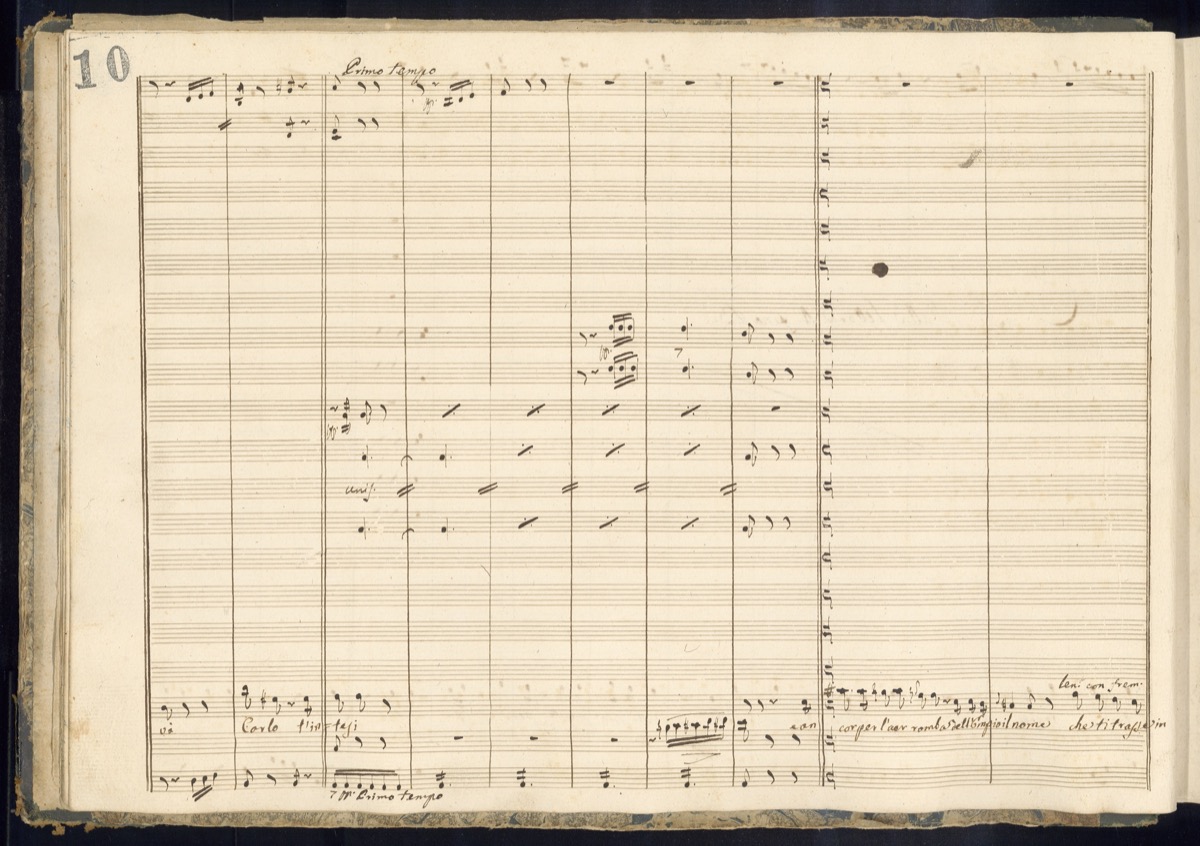 10
Primo tempo
unis.
ten. con frem.
vò Carlo t'in = tesi e an cor per l'aer romba dell'empio il nome che ti trasse in
Primo tempo